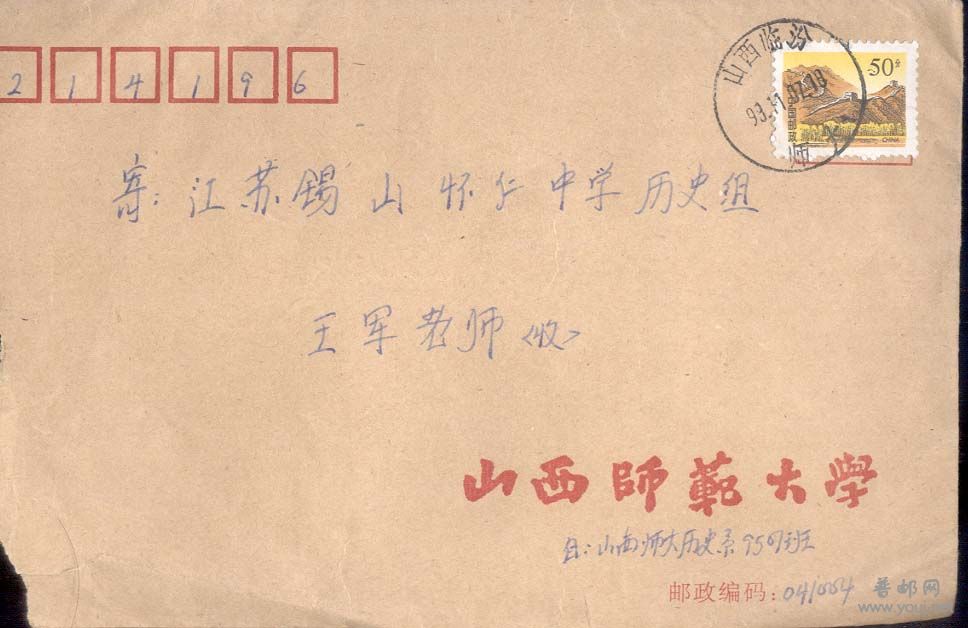 214196
山西临汾
98.11.07.18
师大
50分
中国邮政
CHINA
寄:江苏锡山怀仁中学历史组
王军老师<收>
山西師範大學
自:山西师大历史系9507班
邮政编码:041004
普邮网